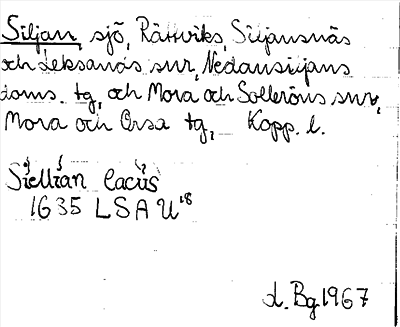 Siljan, sjö, Rättviks, Siljansnäs
och Leksands snr, Nedansiljans
doms. tg, och Mora och Solleröns snr,
Mora och Orsa tg, Kopp. l.
Siellian lacus
1635 LSA U18
d. Bg 1967